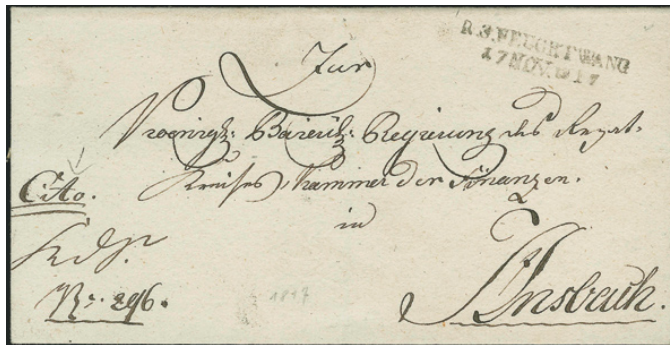 R.3.FEUCHTWANG
17 NOV. 1817
Zur
Koenigl: Baierisch: Regierung des Rezat-
Kreises, Kammer der Finanzen.
Cito.
in
R. d. J.
Nr. 296.
1817
Ansbach.